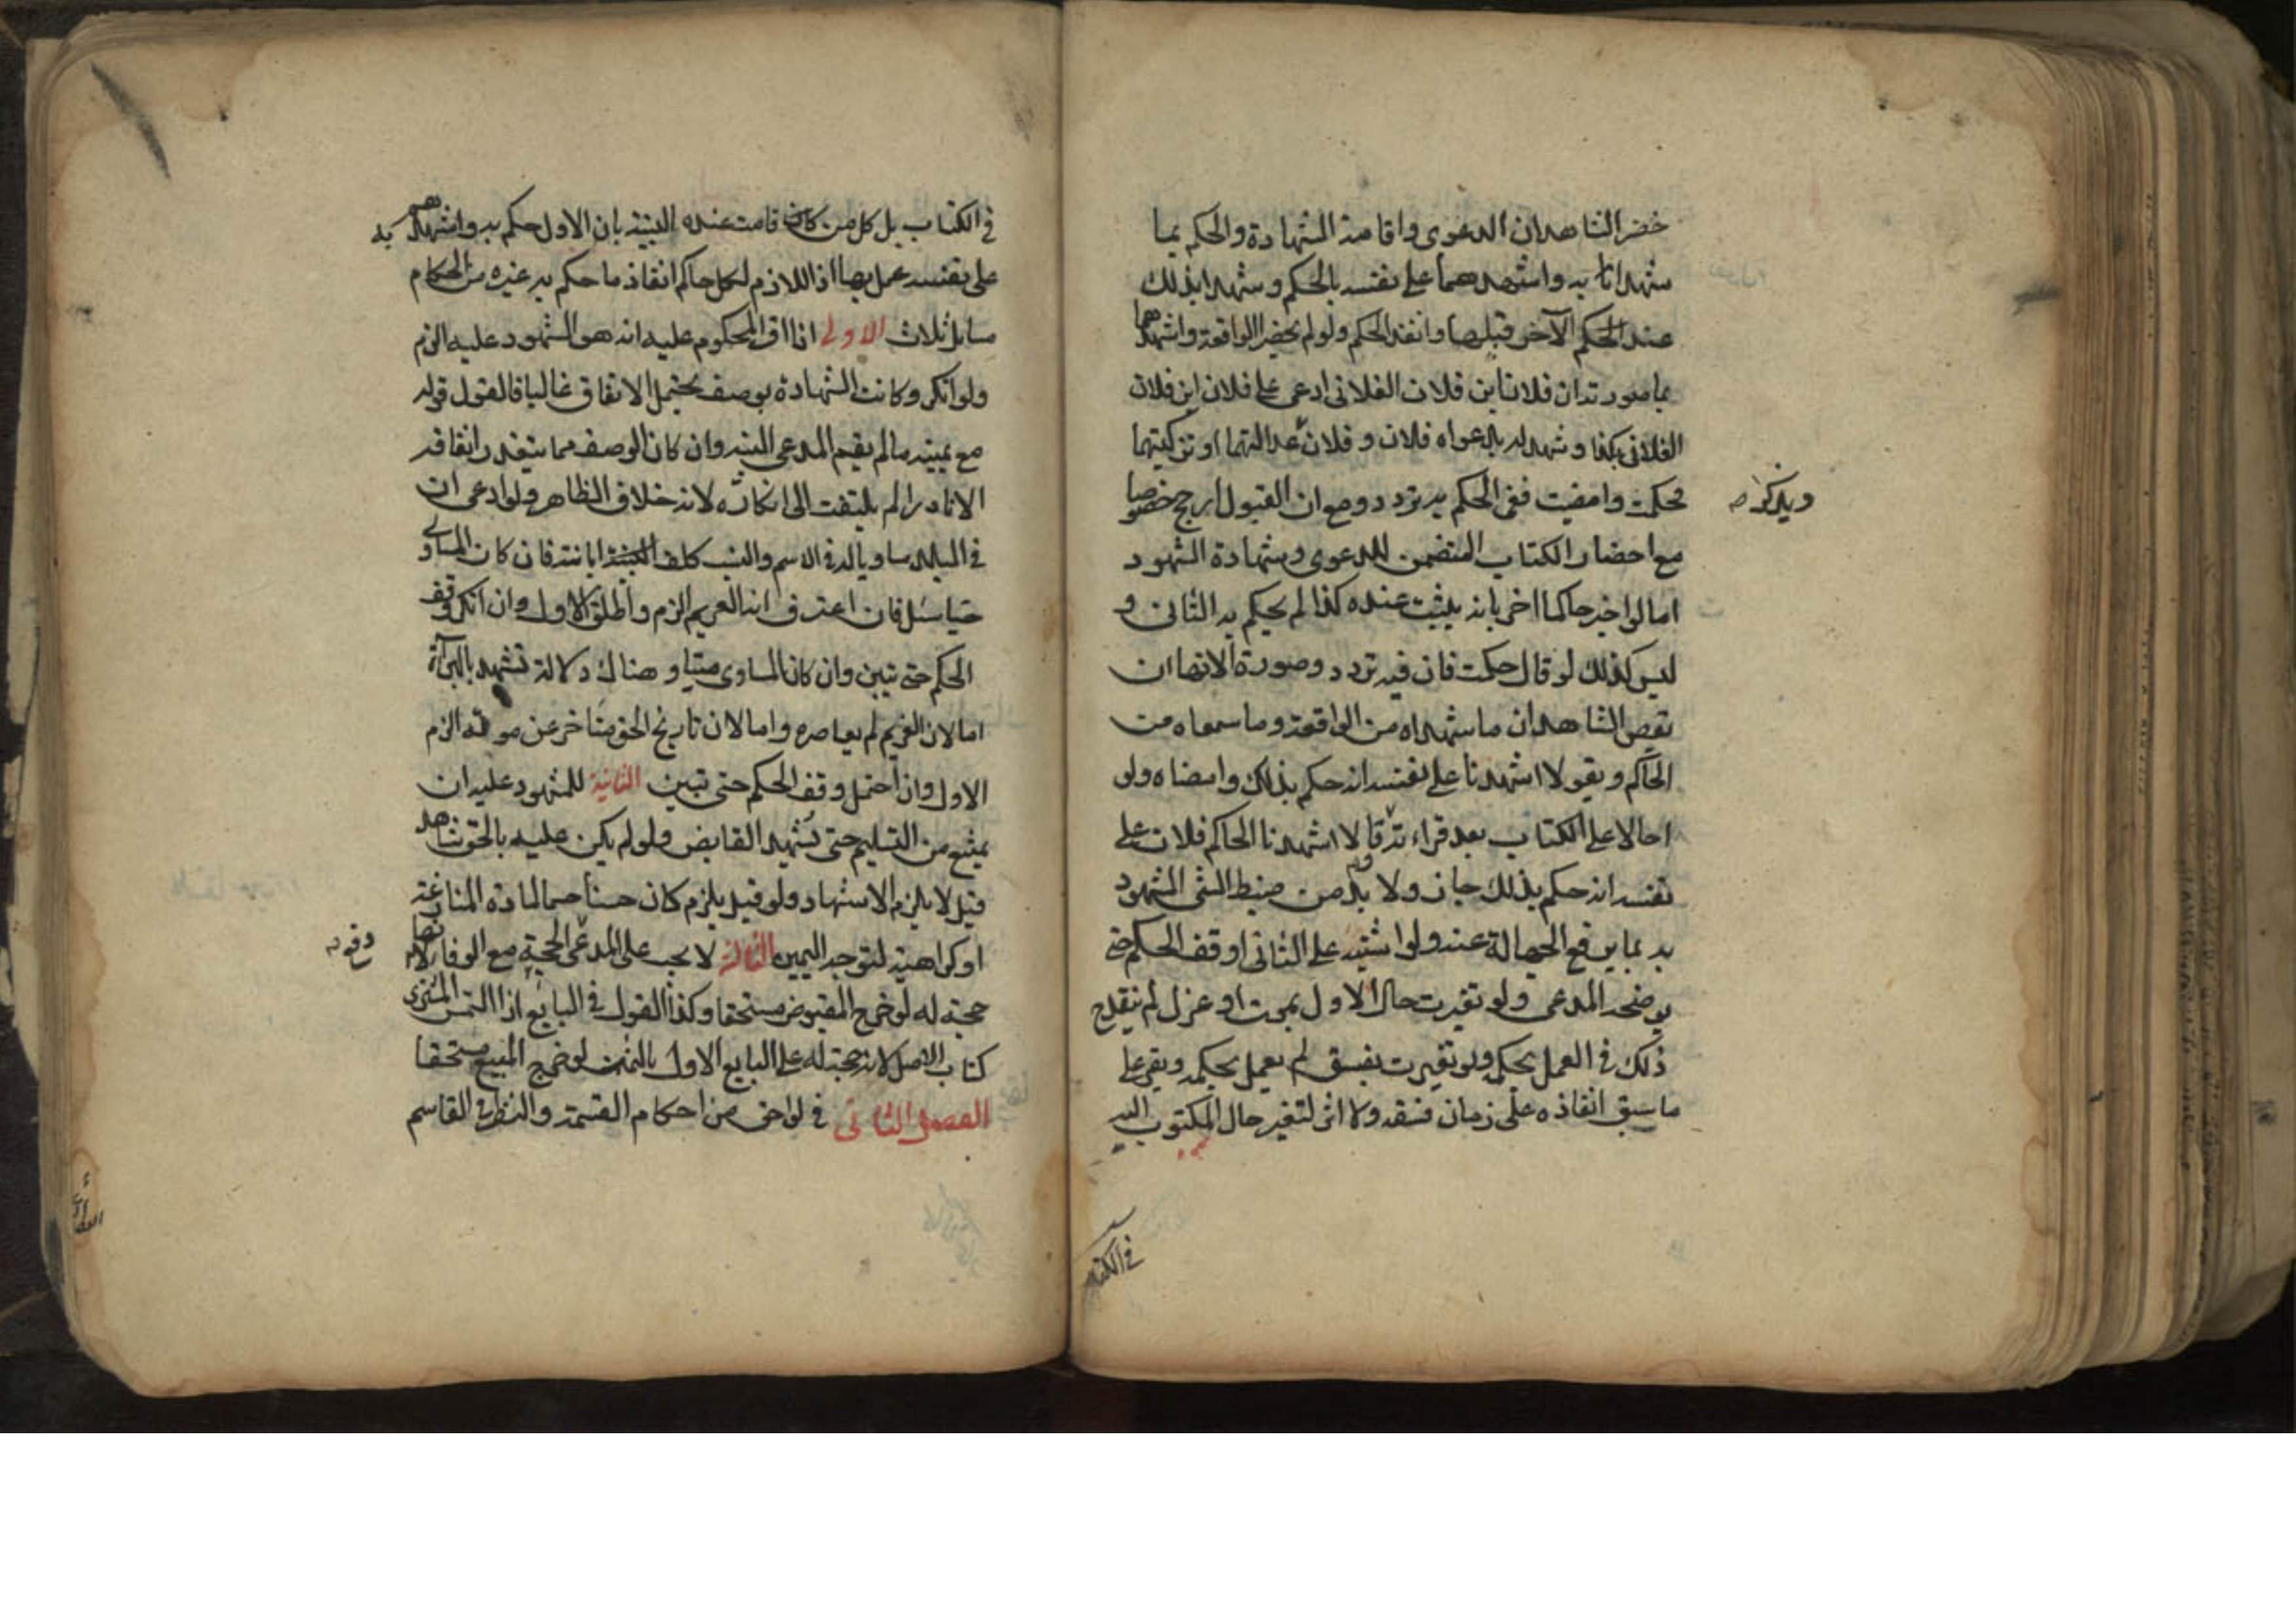 حضر الشاهدان الدعوى واقامة الشهادة والحكم بما
شهدا به واشهدهما على نفسه بالحكم وشهدا بذلك
عند الحكم الآخر قبلها وانفذ الحكم ولو لم يحضرا الواقعة واشهدهما
بما صورته ان فلانا ابن فلان الفلانى ادعى على فلان ابن فلان
الفلانى بكذا وشهد له بدعواه فلان وفلان عدالتهما او تزكيتهما
ويذكر
فحكمت وامضيت ففى الحكم به تردد ومع ان القبول ارجح خصوصا
مع احضار الكتاب المتضمن للدعوى وشهادة الشهود
اما لو اخبر حاكما اخر بانه يثبت عنده كذا لم يحكم به الثانى و
ليس كذلك لو قال حكمت فان فيه تردد وصورة الانها ان
تقص الشاهدان ما شهداه من الواقعة وما سمعاه من
الحاكم ويقولا اشهدنا على نفسه انه حكم بذلك وامضاه ولو
احالا على الكتاب بعد قراءته قالا اشهدنا الحاكم فلان على
نفسه انه حكم بذلك جاز ولا بد من ضبط الشى المشهود
به بما يرفع الجهالة عنه ولو اشتبه على الثانى اوقف الحكم حتى
يوضحه المدعى ولو تغيرت حال الاول بموت او عزل لم يقدح
ذلك فى العمل بحكمه ولو تغيرت بفسق لم يعمل بحكمه ويقر على
ما سبق انفاذه على زمان فسقه ولا اثر لتغير حال المكتوب اليه
فى الكتاب
فى الكتاب بل كل من قامت عنده البينة بان الاول حكم به واشهدهم به
على نفسه عمل بها اذ اللازم لكل حاكم انفاذ ما حكم به غيره من الحكام
مسايل ثلاث الاولى اذا اقر المحكوم عليه انه هو المشهود عليه الزم
ولو انكر وكانت الشهادة بوصف يحتمل الاتفاق غالبا فالقول قوله
مع يمينه ما لم يقم المدعى البينة وان كان الوصف مما يتعذر اتفاقه
الا نادرا لم يلتفت الى انكاره لانه خلاف الظاهر ولو ادعى ان
فى البلد مساويا له فى الاسم والنسب كلف ابانته فان كان المساوى
حيا سئل فان اعترف انه الغريم الزم واطلق الاول وان انكر وقف
الحكم حتى تبين وان كان المساوى ميتا وهناك دلالة تشهد بالبرآءة
اما لان الغريم لم يعاصره واما لان تاريخ الحق متاخر عن موته الزم
الاول وان احتمل وقف الحكم حتى تبين الثانية للمشهود عليه ان
يمتنع من التسليم حتى يشهد القابض ولو لم يكن عليه بالحق شاهد
قيل لا يلزم الاشهاد ولو قيل يلزم كان حسنا حسما لمادة المنازعة
او كراهية لتوجه اليمين الثالثة لا يجب على المدعى الحجة مع الوفا لانها
حجة له لو خرج المقبوض مستحقا وكذا القول فى البايع اذا التمس المشترى
كتاب الاصل لانه حجة له على البايع الاول بالثمن لو خرج المبيع مستحقا
الفصل الثانى فى لواحق من احكام القسمة والنظر فى القاسم